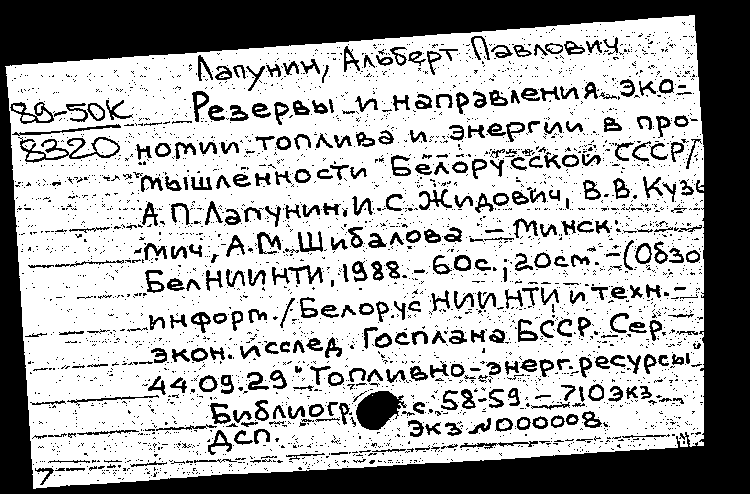 Лапунин, Альберт Павлович.
89-50К Резервы и направления эко-
8320 номии топлива и энергии в про-
мышленности Белорусской ССР/
А.П.Лапунин, И.С.Жидович, В.В.Кузь
мич, А.М.Шибалова. - Минск:
БелНИИНТИ, 1988. - 60с.; 20см. - (Обзо
информ./Белорус НИИ НТИ и техн.-
экон. исслед. Госплана БССР. Сер.
44.09.29 "Топливно-энерг. ресурсы"
Библиогр с. 58-59. - 710экз.
ДСП. Экз №000008.
7